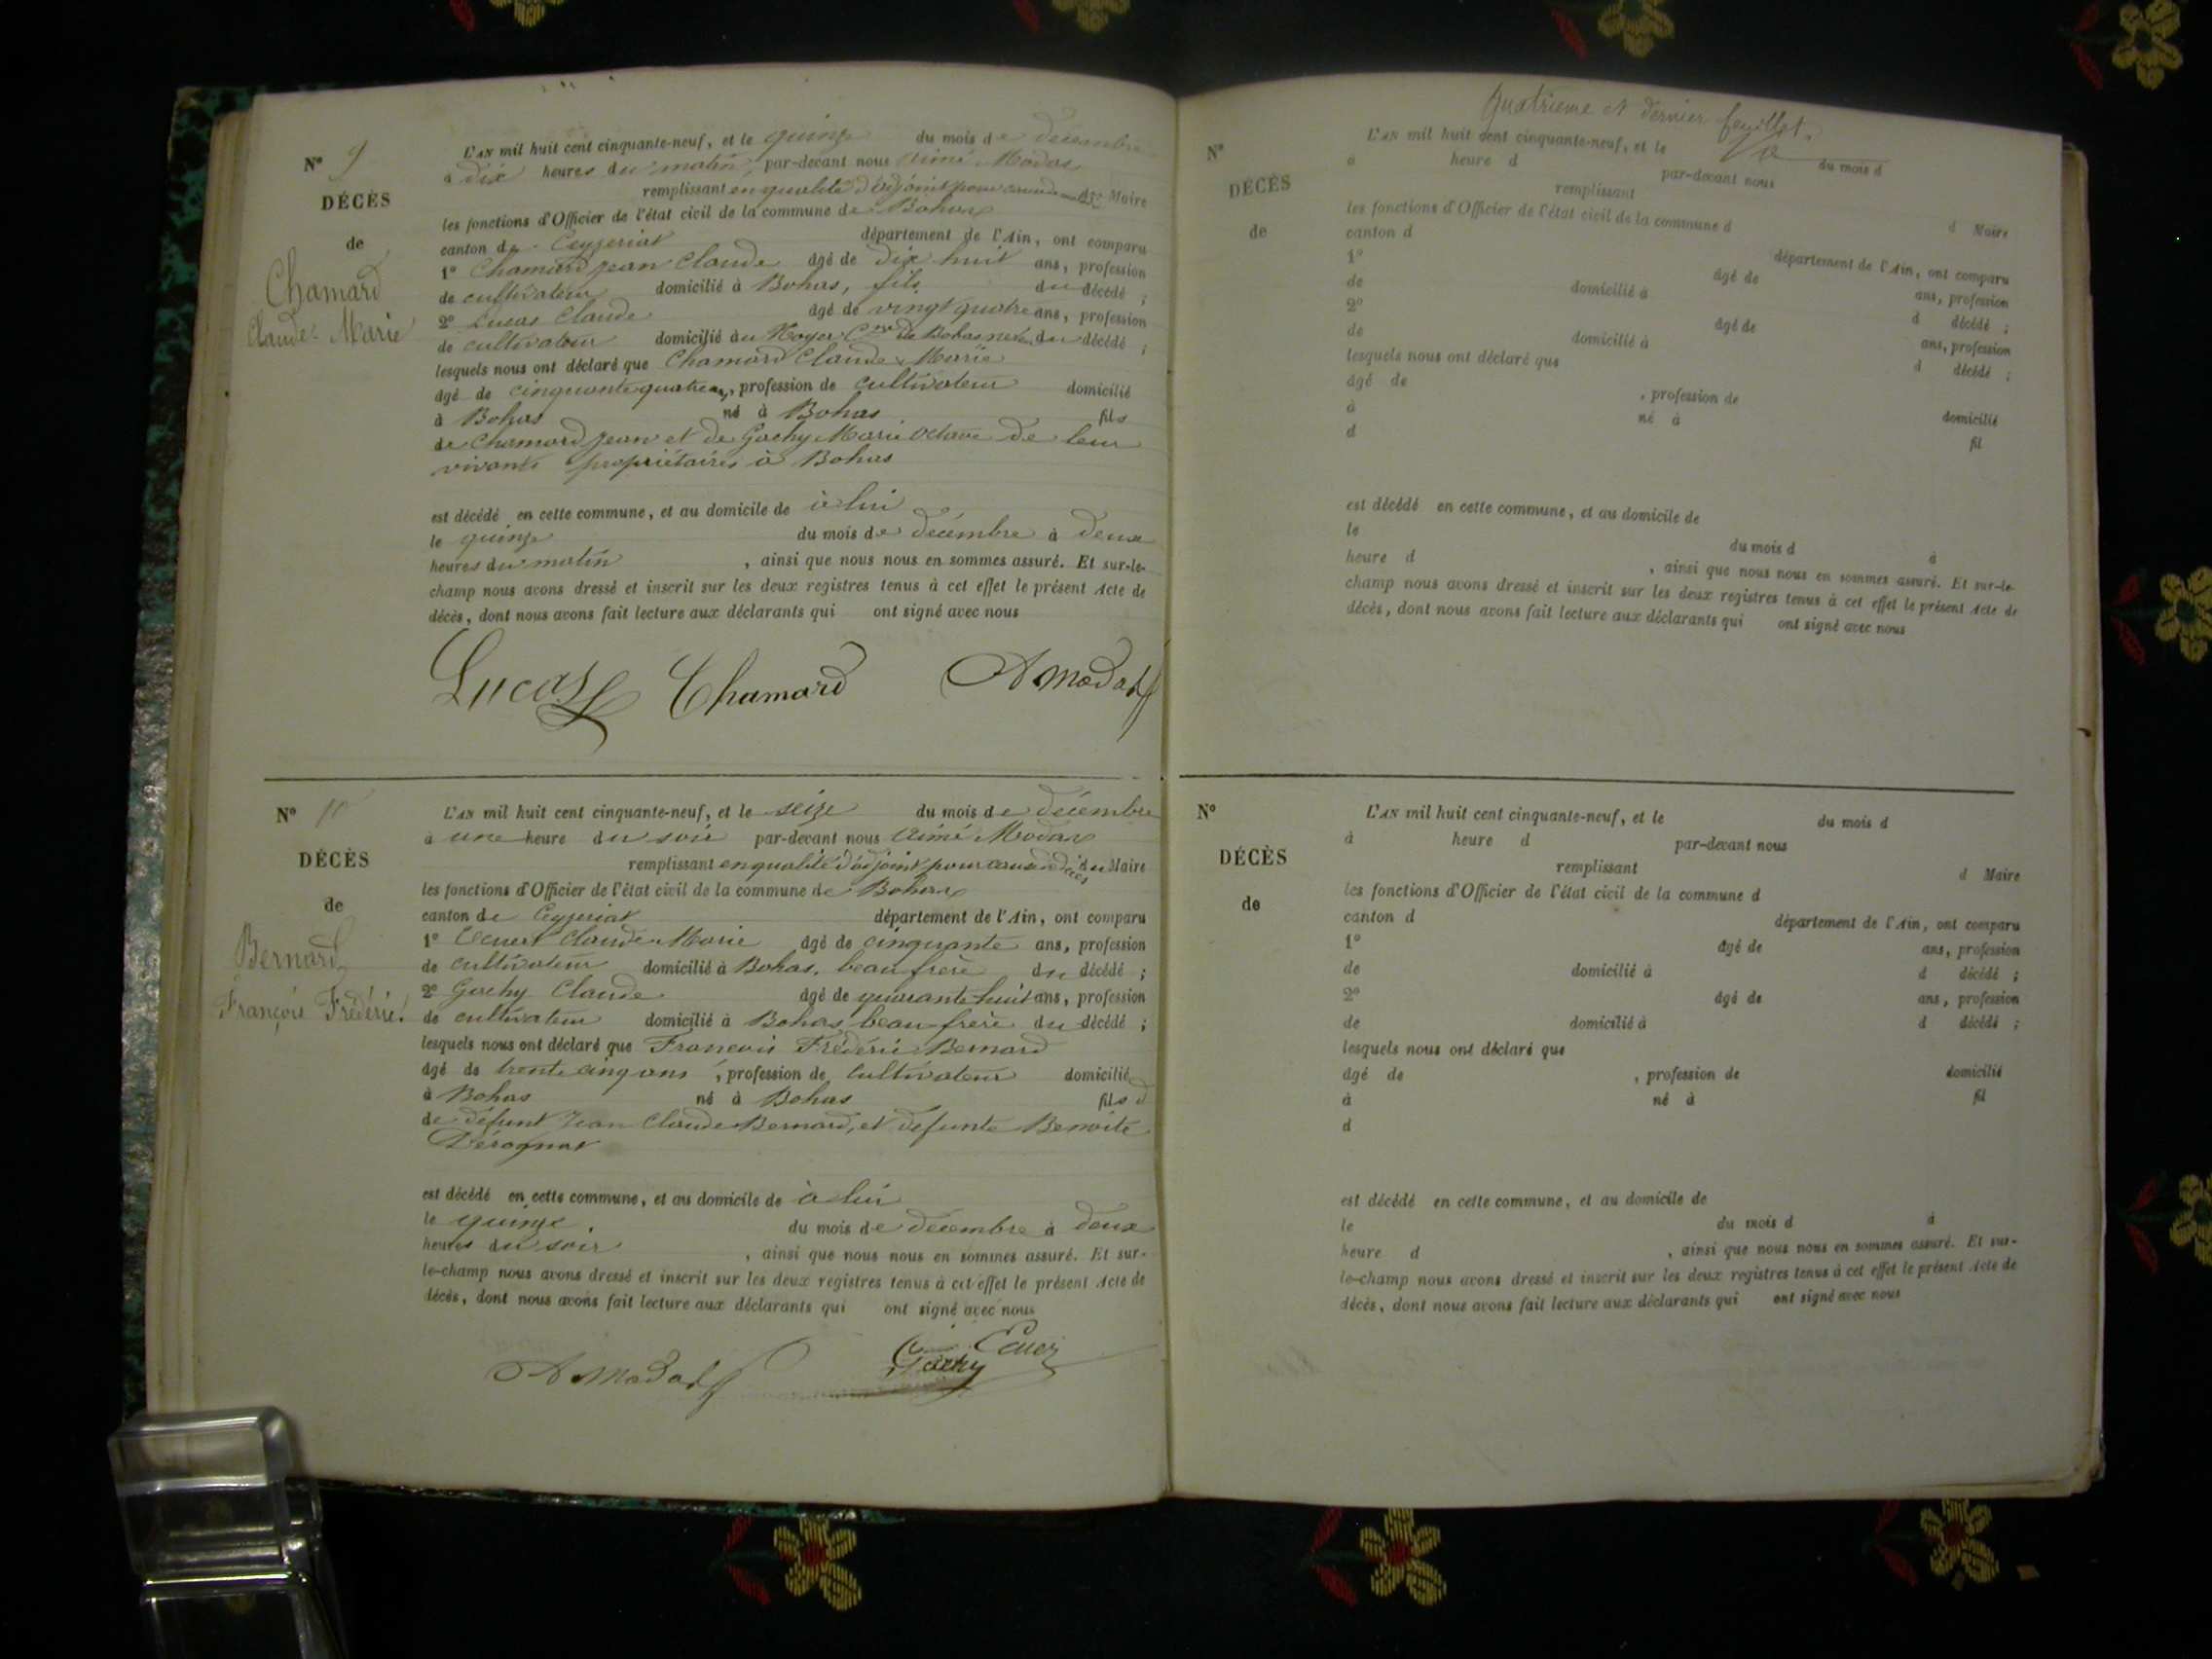 N° 9
DÉCÈS
de
Chamard
Claude-Marie
L'AN mil huit cent cinquante-neuf, et le quinze du mois de décembre
à dix heures du matin, par-devant nous Aimé Modas
remplissant en qualité d'adjoint pour cause Maire
les fonctions d'Officier de l'état civil de la commune de Bohas
canton de Ceyzeriat département de l'Ain, ont comparu
1° Chamard Jean Claude âgé de dix huit ans, profession
de cultivateur domicilié à Bohas, fils du décédé ;
2° Lucas Claude âgé de vingt quatre ans, profession
de cultivateur domicilié au Noyer Cne de Bohas neveu du décédé ;
lesquels nous ont déclaré que Chamard Claude Marie
âgé de cinquante quatre ans, profession de cultivateur domicilié
à Bohas né à Bohas fils
de Chamard Jean et de Gachy Marie Octave de leur
vivants propriétaires à Bohas
est décédé en cette commune, et au domicile de à lui
le quinze du mois de décembre à deux
heures du matin , ainsi que nous nous en sommes assuré. Et sur-le-
champ nous avons dressé et inscrit sur les deux registres tenus à cet effet le présent Acte de
décès, dont nous avons fait lecture aux déclarants qui ont signé avec nous
Lucas Chamard A Modas
N° 10
DÉCÈS
de
Bernard
François Frédéric
L'AN mil huit cent cinquante-neuf, et le seize du mois de décembre
à une heure du soir par-devant nous Aimé Modas
remplissant en qualité d'adjoint pour cause de décès du Maire
les fonctions d'Officier de l'état civil de la commune de Bohas
canton de Ceyzeriat département de l'Ain, ont comparu
1° Claude Marie âgé de cinquante ans, profession
de cultivateur domicilié à Bohas, beau frère du décédé ;
2° Gachy Claude âgé de quarante huit ans, profession
de cultivateur domicilié à Bohas beau-frère du décédé ;
lesquels nous ont déclaré que François Frédéric Bernard
âgé de trente cinq ans , profession de cultivateur domicilié
à Bohas né à Bohas fils d
de défunt Jean Claude Bernard, et défunte Benoite
Dérognat
est décédé en cette commune, et au domicile de à lui
le quinze du mois de décembre à deux
heures du soir , ainsi que nous nous en sommes assuré. Et sur-
le-champ nous avons dressé et inscrit sur les deux registres tenus à cet effet le présent Acte de
décès, dont nous avons fait lecture aux déclarants qui ont signé avec nous
A Modas Gachy
Quatrieme et dernier feuillet.
N°
DÉCÈS
de
L'AN mil huit cent cinquante-neuf, et le du mois d
à heure d par-devant nous
remplissant d Maire
les fonctions d'Officier de l'état civil de la commune d
canton d département de l'Ain, ont comparu
1° âgé de ans, profession
de domicilié à d décédé ;
2° âgé de ans, profession
de domicilié à d décédé ;
lesquels nous ont déclaré que
âgé de , profession de domicilié
à né à fil
d
est décédé en cette commune, et au domicile de
le du mois d à
heure d , ainsi que nous nous en sommes assuré. Et sur-le-
champ nous avons dressé et inscrit sur les deux registres tenus à cet effet le présent Acte de
décès, dont nous avons fait lecture aux déclarants qui ont signé avec nous
N°
DÉCÈS
de
L'AN mil huit cent cinquante-neuf, et le du mois d
à heure d par-devant nous
remplissant d Maire
les fonctions d'Officier de l'état civil de la commune d
canton d département de l'Ain, ont comparu
1° âgé de ans, profession
de domicilié à d décédé ;
2° âgé de ans, profession
de domicilié à d décédé ;
lesquels nous ont déclaré que
âgé de , profession de domicilié
à né à fil
d
est décédé en cette commune, et au domicile de
le du mois d à
heure d , ainsi que nous nous en sommes assuré. Et sur-
le-champ nous avons dressé et inscrit sur les deux registres tenus à cet effet le présent Acte de
décès, dont nous avons fait lecture aux déclarants qui ont signé avec nous